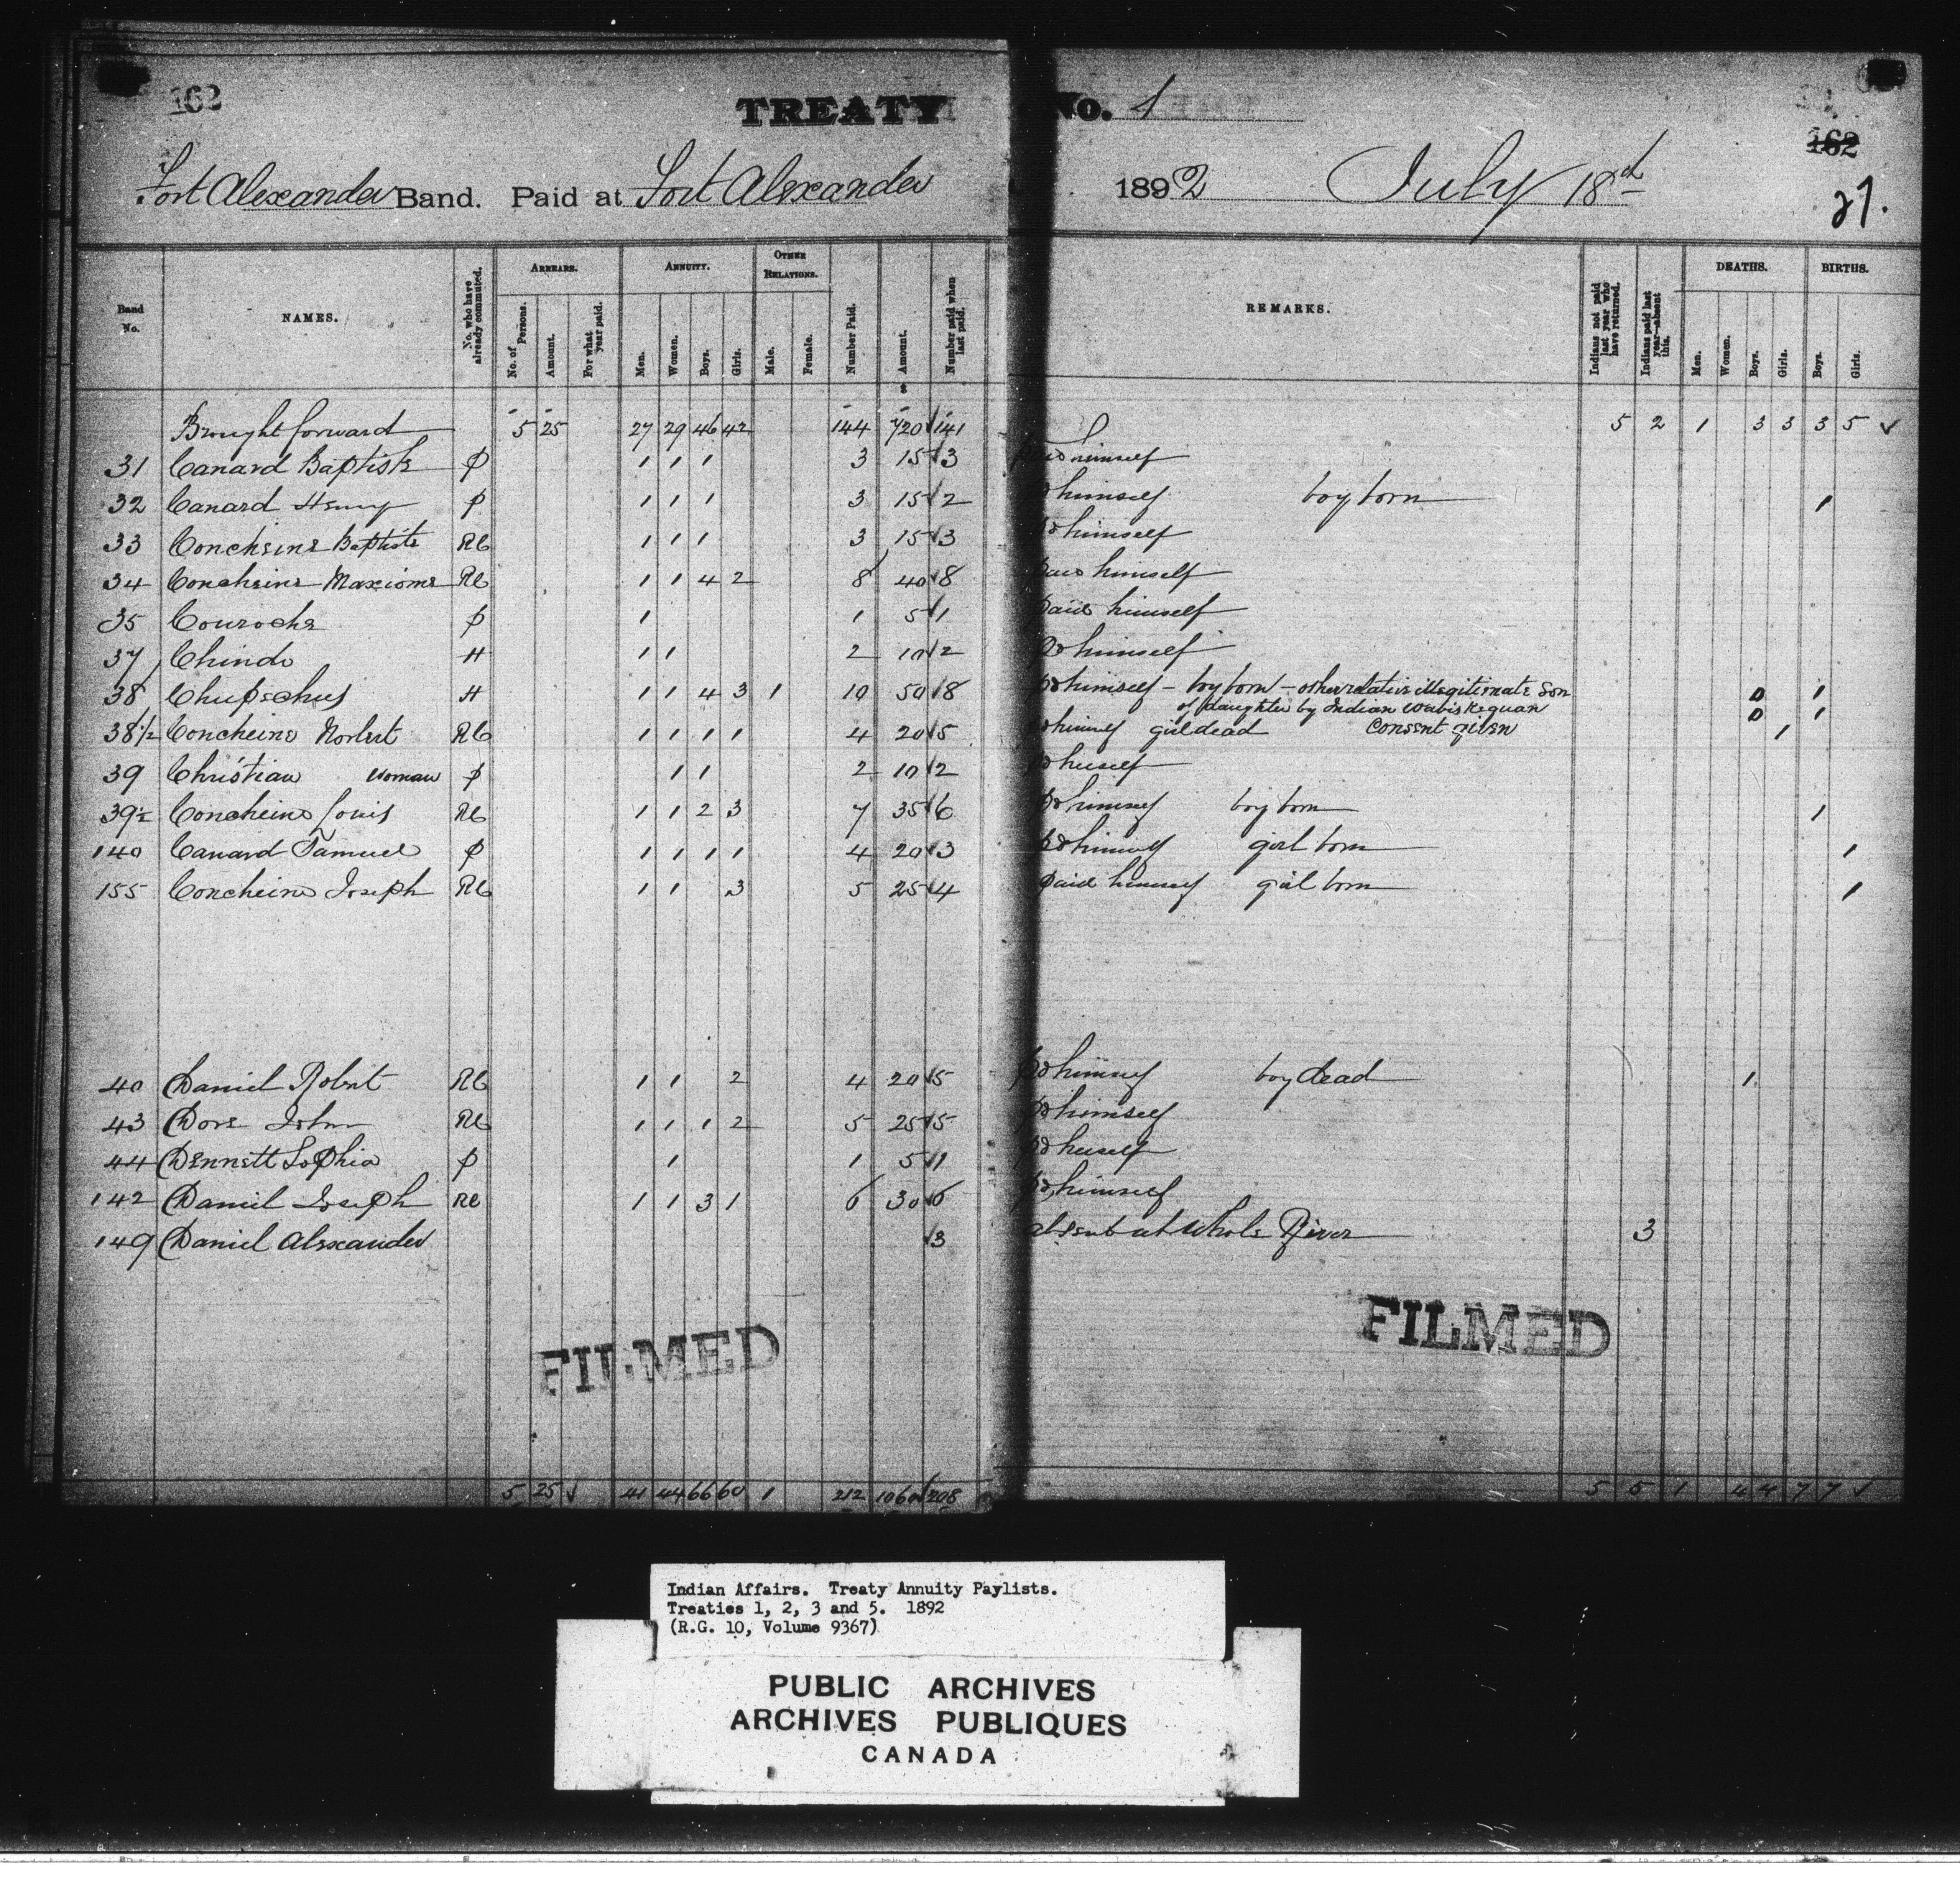 162
TREATY No. 1
162
Fort Alexander Band. Paid at Fort Alexander 1892 July 18th
27.
Band No. NAMES. No. who have already commuted. ARREARS. No. of Persons. Amount. For what year paid. ANNUITY. Men. Women. Boys. Girls. OTHER RELATIONS. Male. Female. Number Paid. Amount. Number paid when last paid. REMARKS. Indians not paid last year who have returned. Indians paid last year—absent this. DEATHS. Men. Women. Boys. Girls. BIRTHS. Boys. Girls.
Brought forward 5 25 27 29 46 42 144 720 141 5 2 1 3 3 3 5 ✓
31 Canard Baptiste P 1 1 1 3 15 3 Paid himself
32 Canard Henry P 1 1 1 3 15 2 Pd himself boy born 1
33 Concheine Baptiste RC 1 1 1 3 15 3 Pd himself
34 Concheine Maxiome RC 1 1 4 2 8 40 8 Paid himself
35 Couroche P 1 1 5 1 Paid himself
37 Chindo H 1 1 2 10 2 Pd himself
38 Chupechus H 1 1 4 3 1 10 50 8 Pd himself – boy born – other relative illegitimate son 0 1
of daughter by Indian Wabiskequan 0 1
38½ Concheine Norbert RC 1 1 1 1 4 20 5 Pd himself girl dead Consent given 1
39 Christian woman P 1 1 2 10 2 Pd herself
39½ Concheine Louis RC 1 1 2 3 7 35 6 Pd himself boy born 1
140 Canard Samuel P 1 1 1 1 4 20 3 Pd himself girl born 1
155 Concheine Joseph RC 1 1 3 5 25 4 Paid himself girl born 1
40 Daniel Robert RC 1 1 2 4 20 5 Pd himself boy dead 1
43 Dove John RC 1 1 1 2 5 25 5 Pd himself
44 Dennett Sophia P 1 1 5 1 Pd herself
142 Daniel Joseph RC 1 1 3 1 6 30 6 Pd himself
149 Daniel Alexander 3 absent at Whole River 3
FILMED
FILMED
5 25 ✓ 41 44 66 60 1 212 1060 208 5 5 1 4 4 7 7 ✓
Indian Affairs. Treaty Annuity Paylists.
Treaties 1, 2, 3 and 5. 1892
(R.G. 10, Volume 9367)
PUBLIC ARCHIVES
ARCHIVES PUBLIQUES
CANADA